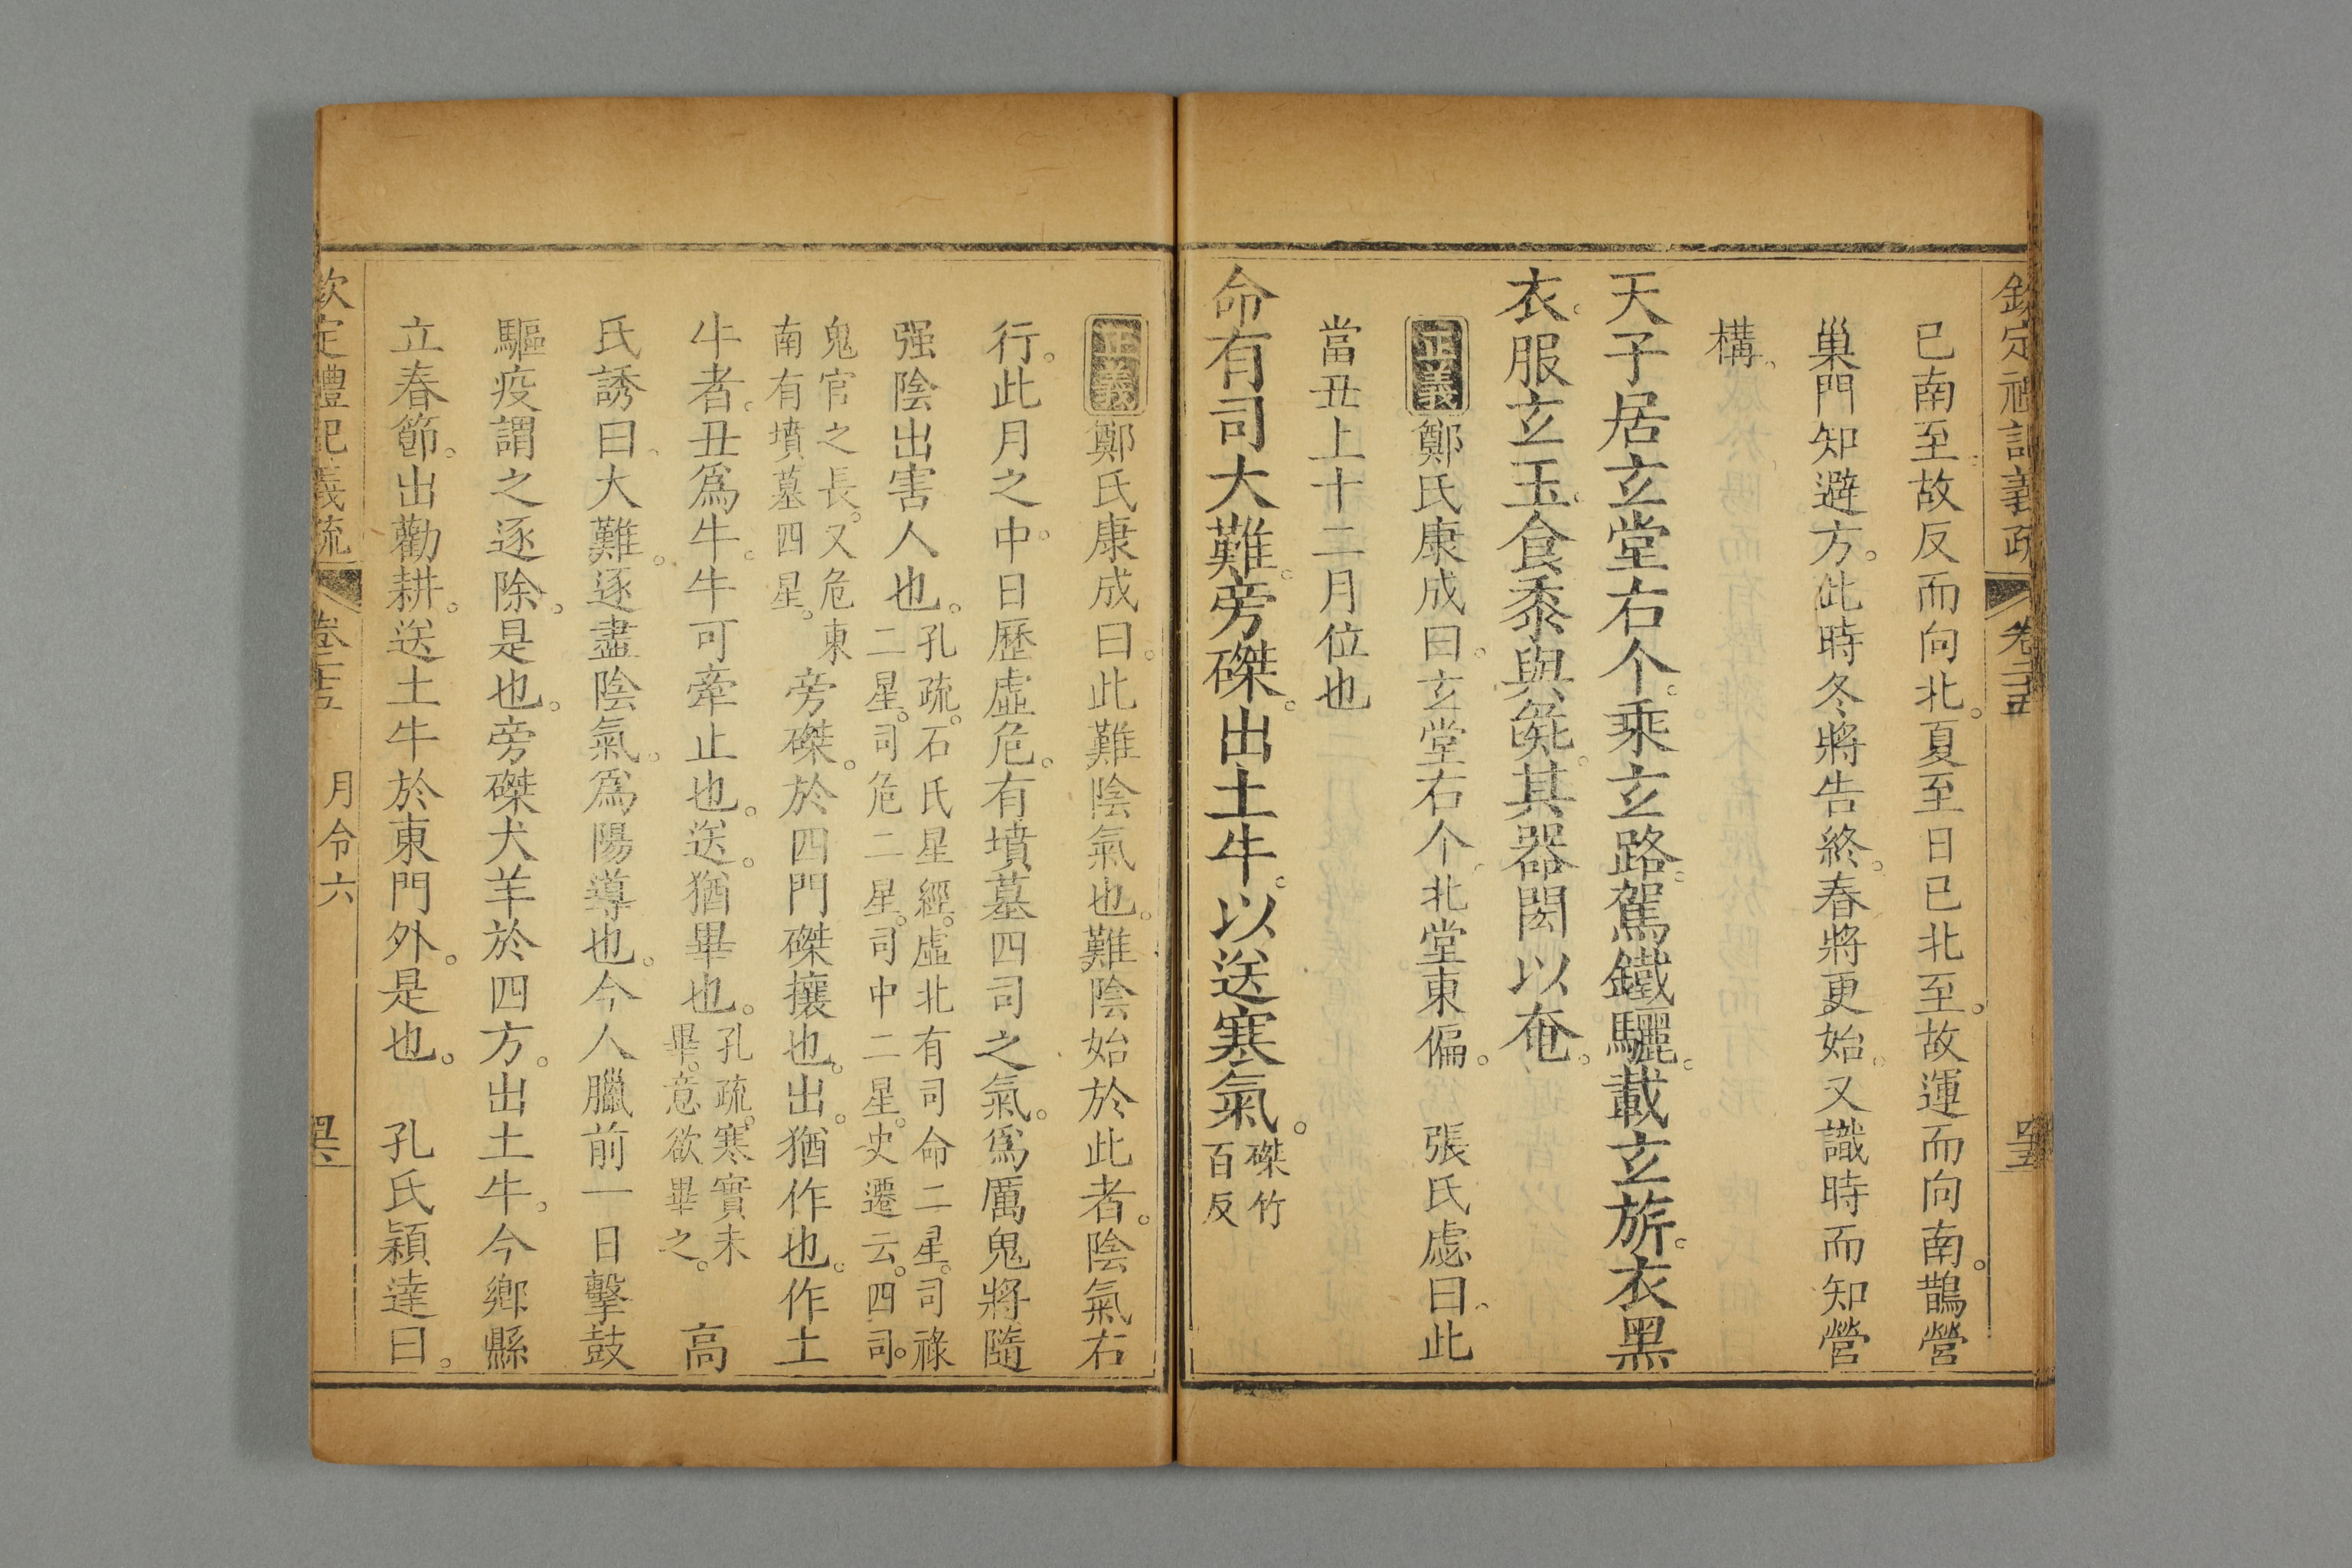 欽定禮記義疏 卷二十五
已南至故反而向北。夏至日已北至。故運而向南。鵲營
巢門知避方。此時冬將告終。春將更始。又識時而知營
構。
天子居玄堂右个。乘玄路。駕鐵驪。載玄旂。衣黑
衣。服玄玉。食黍與彘。其器閎以奄。
正義 鄭氏康成曰。玄堂右个。北堂東偏。 張氏虙曰。此
當丑上十二月位也
命有司大難。旁磔。出土牛。以送寒氣。磔竹
百反
正義 鄭氏康成曰。此難陰氣也。難陰始於此者。陰氣右
行。此月之中。日歷虛危。有墳墓四司之氣。爲厲鬼將隨
强陰出害人也。孔疏。石氏星經。虛北有司命二星。司祿
二星。司危二星。司中二星。史遷云。四司。
鬼官之長。又危東
南有墳墓四星。旁磔。於四門磔攘也。出。猶作也。作土
牛者。丑爲牛。牛可牽止也。送。猶畢也。孔疏。寒實未
畢。意欲畢之。 高
氏誘曰。大難。逐盡陰氣。爲陽導也。今人臘前一日擊鼓
驅疫謂之逐除。是也。旁磔犬羊於四方。出土牛。今鄉縣
立春節。出勸耕。送土牛於東門外。是也。 孔氏穎達曰。
欽定禮記義疏 卷二十五 月令六